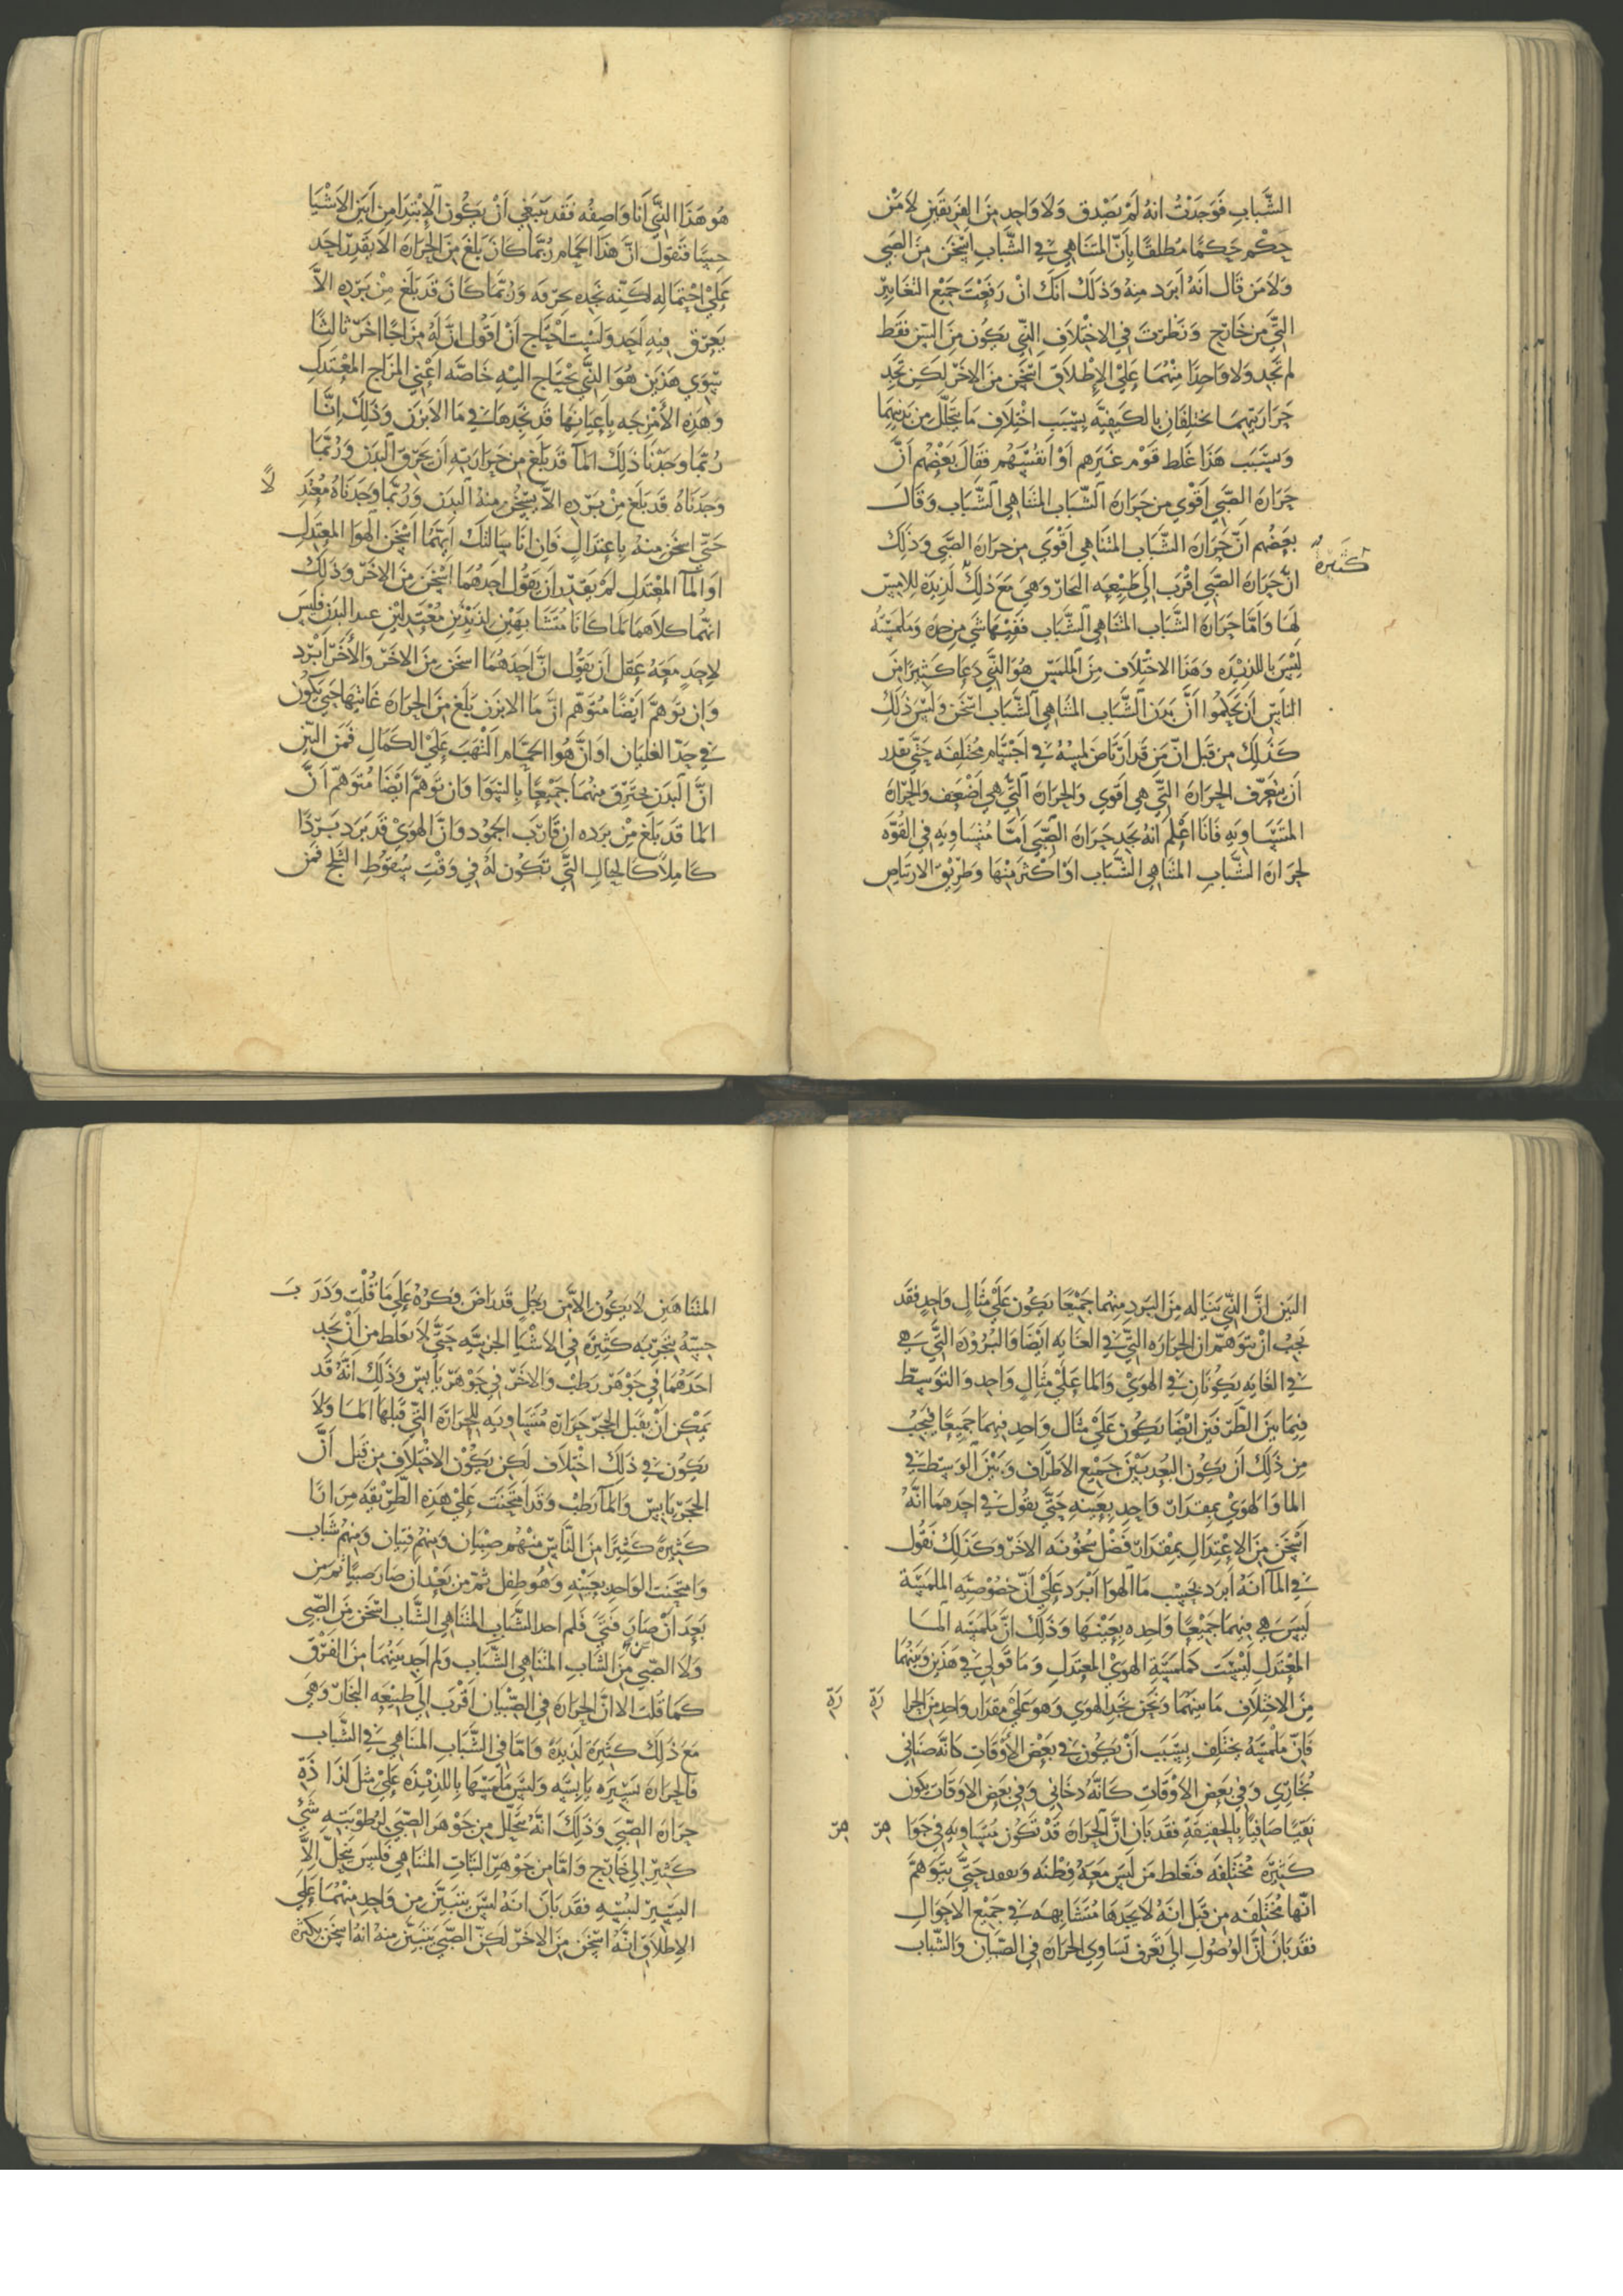 الشَّبابِ فَوَجَدْتُ انهُ لَمْ يَصْدق وَلَا وَاحِدٍ مِنَ الفَرِيقَيْنِ لَا مَنْ
حَكْم حَكمًا مُطلقًا بِأنّ المتَنَاهِي في الشَّبابِ اسْخَن مِنَ الصَبي
وَلَا مَن قَال انهُ ابرَد مِنهُ وَذلَكْ انَكَ انْ رَفَعْتَ جَمْيْع التغَايِيْر
التي مِن خَارج وَنَظرْتَ في الاخْتِلَافِ الذّي يَكُون مِنَ السِّن فقَط
لم تَجد وَلا وَاحِدًا مِنْهُمَا عَلَيْ الإطلَاقِ اسْخَن مِنَ الاخَرْ لكِن تَجد
حَرَارَتِهمَا تختلفَانِ بالكَيفيَّه بِسَبَبِ اخْتلَافِ مَا يَتحَلّلْ مِن بَدنِهِمَا
وبِسَبَب هَذَا غَلط قَوْم غَيَرهم اوْ انفُسَهُم فقَالَ بَعضْهُم انَّ
حَرَارَه الصَّبي اقْوي مِن حَرَارَه الشّبَاب المتنَاهي الشَّبابِ وَقَالَ
بَعضُهم انّ حَرَارَه الشّبابِ المتنَاهي اقْوَي مِن حرَاره الصَّبي وَذَلِكَ
انّ حَرَارَه الصَّبي اقْرَب الي طَبْيعِه البخَار وَهيَ مَعَ ذلكَ لَذيذَه لِلامِسْ
كَثيَرة
لهَا وَامَّا حَرَارَه الشَّباب المتنَاهِي الشّبَاب فَفيْهَا شَي مِن حِدَه وَملمسَهُ
لَيْسَ باللذيْذه وَهَذا الاخْتلَاف مِنَ الملمَسِ هُوَ الذّي دَعَا كَثيرًا مِنَ
النَاسِ ان يَحكمُوا انَّ بَدَن الشَّباب المتنَاهِي الشَّبابِ اسْخَن وَليْسَ ذَلِكَ
كَذلِك مِن قَبَل انّ مَن قَد ارْتَاضَ لمسُهُ في اجْسَام مختَلفَه حَتّي يقدر
ان يتعَرّف الحرَارَه التّي هِي اقوي وَالحرَاره التّي هِي اضْعَف والحرَارَه
المتَسَاويهِ فَانَا اعْلم انهُ يَجد حَرَارَه الصَّبَي امَّا مُتسَاويه في القُوّه
لحرَارَه الشَّباب المتنَاهِي الشّبَاب اوْ اكْثَر مِنْهَا وَطَرْيْق الارتيَاض
هُو هَذَا الذّي انَا وَاصِفُه فَقد يَنبَغي أنْ يكُون الابْتِدَا مِن ابيَن الاشْيَا
حِسًّا فَنَقوُلْ انّ هَذَا الحمَام رُبّمَا كَانَ بَلغَ مِنَ الحرَارَه الا يقَدرْ احَد
عَلَيْ احْتمَالِهِ لكنَّه يَجده يحرّقه وَرُبّمَا كَانَ قَد بَلَغ مِنْ بَرْدِه الَّا
يَعرْق فِيْهِ احَد وَلَسْت احْتَاج انْ اقوُل انّ لَهُ مِزَاجًا اخَر ثَالثًا
سِوَي هَذَين هُوَ الذّي يحْتَاج اليْهِ خَاصّه اعْني المزَاج المعْتَدلِ
وَهَذِه الأمْزجَه باعيَانِهَا قَد تجدهَا في مَا الابْزَن وَذَلِكَ انّنَا
رُبّمَا وَجَدْنَا ذَلِكَ الماَ قَد بَلَغ مِن حَرَارَتهِ ان يَحرقَ البَدَن وَرُبّمَا
وَجَدنَاهُ قَد بَلَغ مِنْ بَرْدِه الَّا يسْخُن مِنهُ البدَن وَرُبّمَا وَجَدنَاهُ مُعْتَدِ لًا
حَتّي اسخَن مِنهُ باعتدَالٍ فَان انَا سَالتكَ ايّهمَا اسْخَن الهوَا المعتَدلِ
اوِ الماَ المعْتَدل لَمْ يقَدّر ان يَقوُل احَدهُمَا اسْخَن مِنَ الاخَرْ وَذلكْ
انّهُمَا كلَاهُمَا لمَا كَانَا مُتَشَابِهَيْن لِذيذيْن مُعْتَدلَيْن عند البَدن فليسَ
لاحَدٍ مَعَهُ عَقل ان يَقوُل انّ احَدهُمَا اسخَن مِنَ الاخَرْ وَالأخَرْ ابْرَد
وَان تَوهّم ايْضًا مُتَوَهّم انّ مَا الابزَن بَلَغ مِنَ الحرَارَه غَايتهَا حَتّي يَكوُن
في حَدّ الغليَان اوْ انّ هُوَا الحمَّام التَهَبَ عَليْ الكَمَال فَمَن البَيّن
انّ البَدَن يحتَرق مِنهُمَا جَمْيعًا بالسّوَا وَان تَوهّم ايْضًا مُتَوهّم انّ
الما قَد بَلَغ مِنْ بَردِه ان قَارَبَ الجمُود وَانّ الهوَيْ قَد بَرَد بَرْدًا
كَامِلًا كَالحَالِ التَّي تَكوُن لهُ في وَقْتِ سُقوُطِ الثَلج فَمَن
البَيّن انَّ الذّي يَنَاله مِنَ البَردِ مِنهُما جَمْيعًا يَكُون عَلَيْ مثَالٍ وَاحِدٍ فقَد
يَجبُ انْ يتوَهّمْ ان الحرَاَره التي في الغَايَه ايْضًا وَالبُرُوْدَه التي هيَ
في الغَايَه يَكوُنَانِ في الهوَيْ وَالما عَلَيْ مثَالٍ وَاحِد وَالتوَسّط
فِيمَا بيَنَ الطَّرفَين ايْضًا يَكوُن عَلَيْ مثَال وَاحِد فِيهمَا جَمْيعًا فيَجبُ
مِن ذَلَكَ ان يَكوُن البُعد بَيْنَ جَمْيع الاطرَاف وَبَيْنَ الوَسِط في
الما وَالهوَيْ بمقدَار وَاحِدٍ بعيَنهِ حَتَّي يقوُل في احَدهمَا انَّهُ
اسْخَن مِنَ الاعْتِدَالِ بِمقدَار فضْل سُخوُنَه الاخَرْ وَكَذلكَ نقُول
في الماَ انهُ ابرَد بحَسْب مَا الهوَا ابْرَد عَلَيْ انّ خصُوْصيّه الملمَسَّه
ليَسَ هي فيهِمَا جَمْيعًا وَاحدَه بِعَيْنِهَا وَذَلِكَ انّ مَلمَسَه المَا
المعْتدل ليْسَت كَملمَسَة الهوَيْ المعتدلِ وَمَا قَولي في هَذَين وَبَيْنهُمَا
مِنَ الاختِلَاف مَا بَيْنهُمَا وَنَحْن نجَد الهوَي وَهوَ عَلَيْ مقدَارٍ وَاحِد مِنَ الحرَا رَةِ
فَانّ مَلْمَسَهُ يَختَلف بِسَبَب انْ يَكوُن في بَعضْ الأوْقَاتِ كَانَّه ضَبَابي
بُخَارِي وَفي بَعض الأوْقَاتِ كَانَّهُ دخَاني وَفي بعض الاوَقاتِ يكون
نَقيًّا صَافيًا بِالحقيقَة فقَد بَان انّ الحرَارَه قَدْ تَكوُن متسَاويهِ في جَوَا هِرْ
كَثيرَه مُخْتَلفَه فَتغَلط مَن ليَسَ مَعَهُ فِطْنَه وَتفقد حَتَّي يتوَهّم
انّها مُختَلفَه مِن قَبَل انّهُ لَا يَجدهَا مُتَشَابهَه في جَمْيع الاحَوَالِ
فقَد بَانَ انّ الوُصُول الي تَعَرف تَسَاوِي الحرَاره في الصّبيَان وَالشّبَاب
المتنَاهيَنِ لَا يكوُن الا مِن رَجُل قَد رَاضَ فكرهُ عَلي مَا قُلت وَدَرَ بَ
حِسّهُ بتجَربَه كَثيَره في الاشْيَا الجزئيَّه حَتَّي لَا يغَلط مِن انْ يَجد
احَدَهمَا في جَوْهَر رَطبْ وَالاخَرْ في جَوْهَر يَابِسْ وَذَلِكَ انّهُ قَد
يمْكِن انْ يَقبَل الحجَر حَرَارَه مُتسَاويَه للحرَارَه التي قَبلَهَا المَا وَلَا
يَكوُن في ذَلِكَ اخْتلَاف لَكِن يَكوُنْ الاخْتلَاف مِن قَبل انَّ
الحجَر يَابِسْ وَالماَ رَطبْ وَقَد امتَحَنت عَلَيْ هَذِه الطّريْقَه مِرَارًا
كَثيْرَةً كَثيْرًا مِنَ النّاسِ مِنْهُم صِبْيَان وَمِنهُم فتيَان وَمِنهُم شَبَاب
وَامتحَنت الوَاحِد بِعَيْنِهِ وَهُوَ طِفل ثمّ مِن بَعْد ان صَار صَبيًا ثم مِن
بَعَد انْ صَارَ فَتيً فَلم اجد الشَّباب المتنَاهِي الشَّبَاب اسْخَن مِنَ الصَّبي
وَلَا الصَّبي مِنَ الشّبَابِ المتنَاهِي الشَّبَاب وَلم اجد بَيْنهُمَا مِنَ الفَرْقِ
كمَا قُلت الا انّ الحرَارَه في الصّبْيَان اقرَب الي طَبيْعَه البخَار وَهيَ
مَعَ ذَلِكَ كَثيَرَة لَذيذَةً وَامّا في الشَّبَابِ المتنَاهي في الشَّبَاب
فَالحرَارَه يَسِيْرَه يَابِسَه وَليسَ مَلمَسَهَا باللذيْذَه عَلَيْ مثل لَذَا ذَةِ
حَرَارَه الصَّبَي وَذَلِكَ انّهُ يَتحَلّل مِن جَوْهَر الصَّبيَ لرُطوْبَتِهِ شَيْ
كَثيْر الي خَارج وَامّا مِن جَوْهَر الشَّابِ المتنَاهِي فَليسَ يَتحَلّ الاَّ
اليَسيْر ليُبسِهِ فقَد بَانَ انهُ ليْسَ يتبَيَّن مِن وَاحِد مِنْهُمَا عَلَي
الاِطلَاقِ انّهُ اسْخَن مِنَ الاخَرْ لَكِنّ الصَّبَي يتبَيَّن مِنهُ انهُ اسْخَن بكثرَه